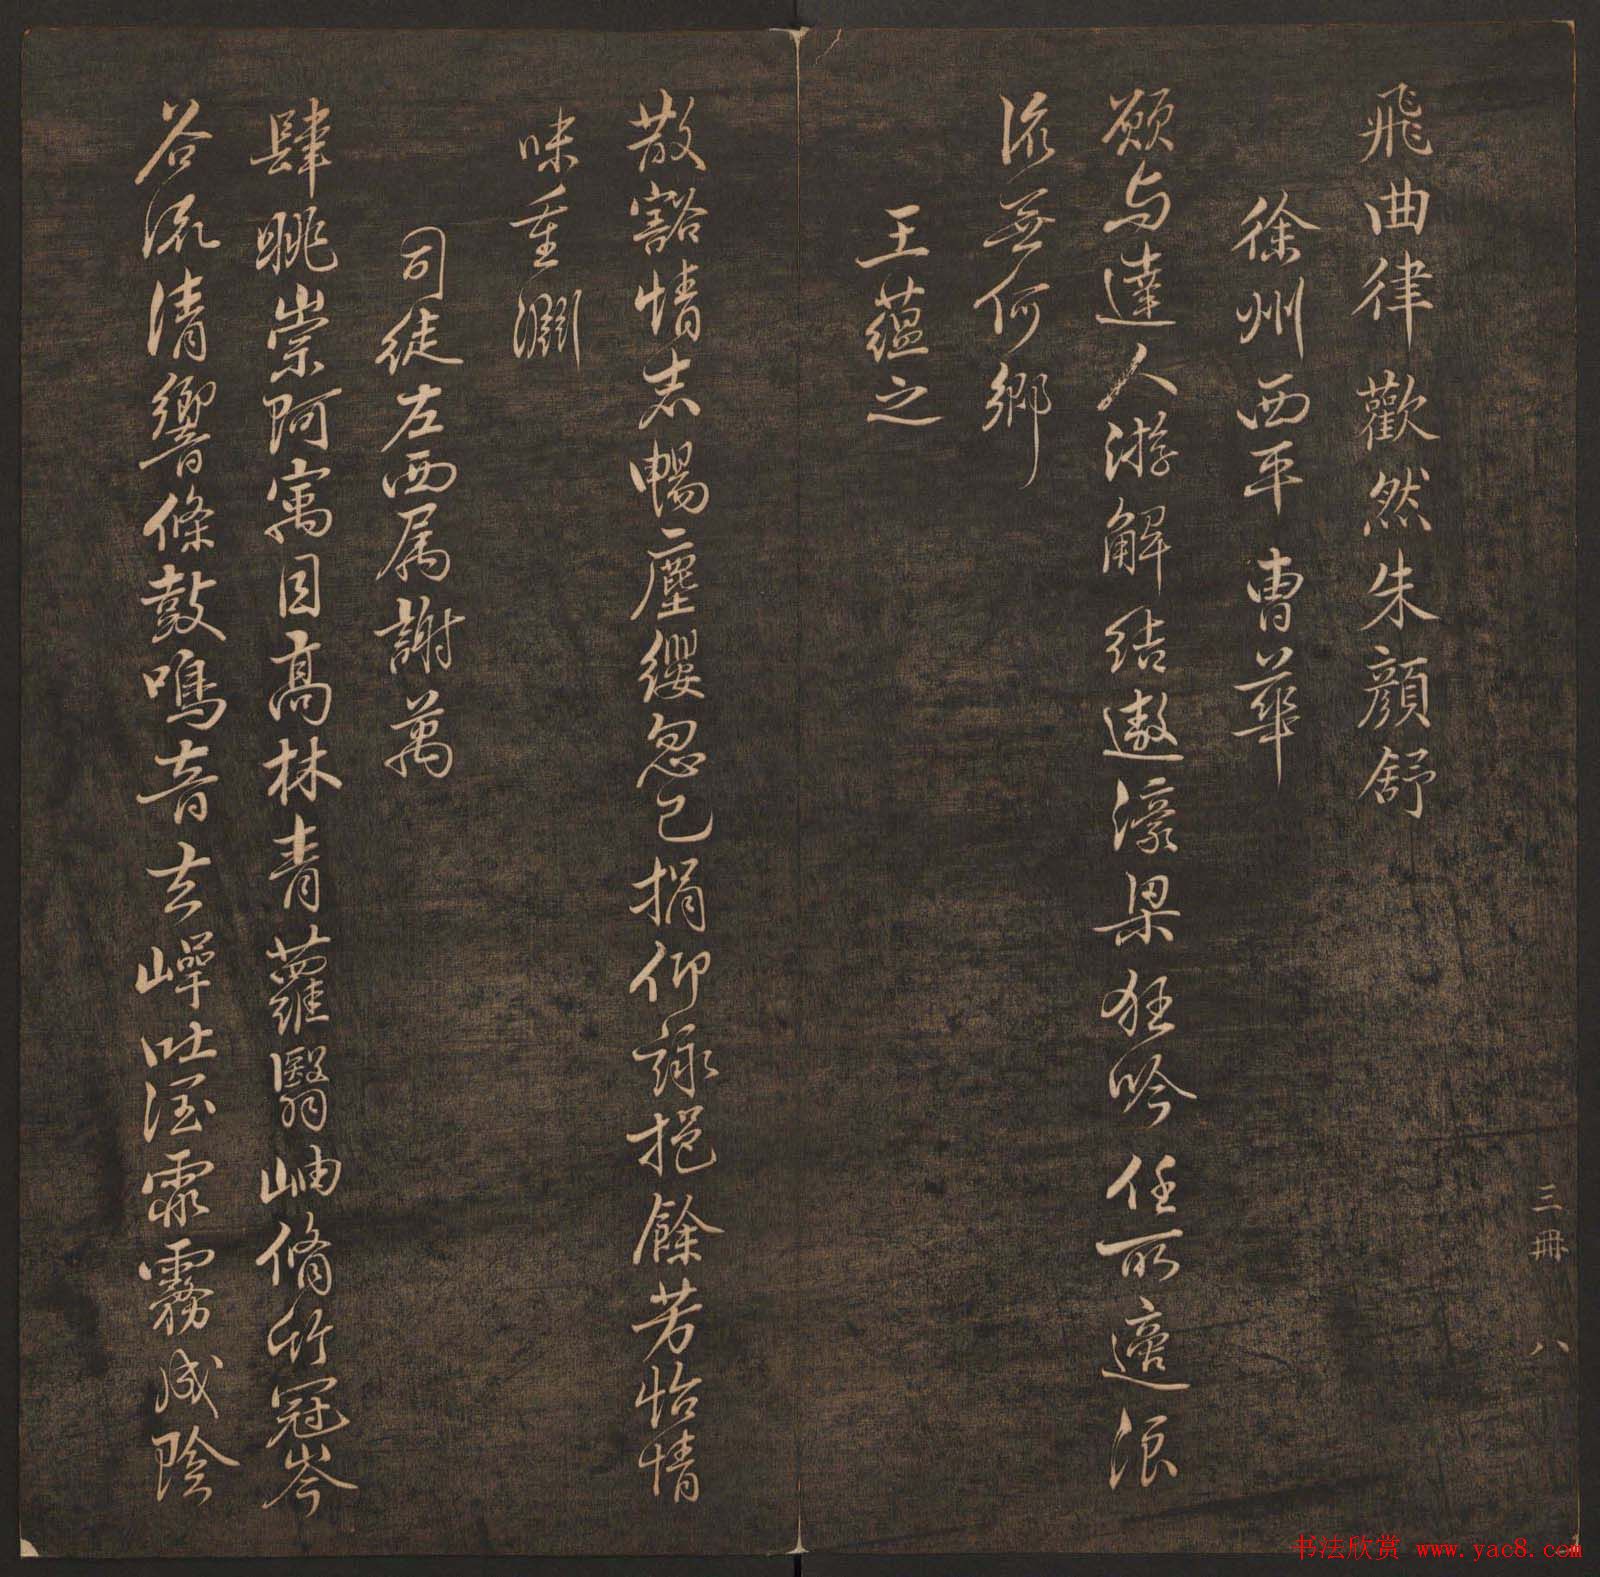 飛曲律歡然朱顏舒
徐州西平曹華
願与達人游解結遨濠梁狂吟任所適浪
流無何鄉
王蘊之
散豁情志暢塵纓忽已捐仰詠挹餘芳怡情
味重淵
司徒左西属謝萬
肆眺崇阿寓目高林青蘿翳岫脩竹冠岑
谷流清響條鼓鳴音玄崿吐潤霏霧成陰
三冊 八
书法欣赏 www.yac8.com